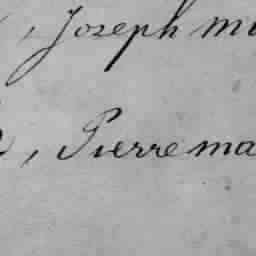 , Joseph
, Pierre ma